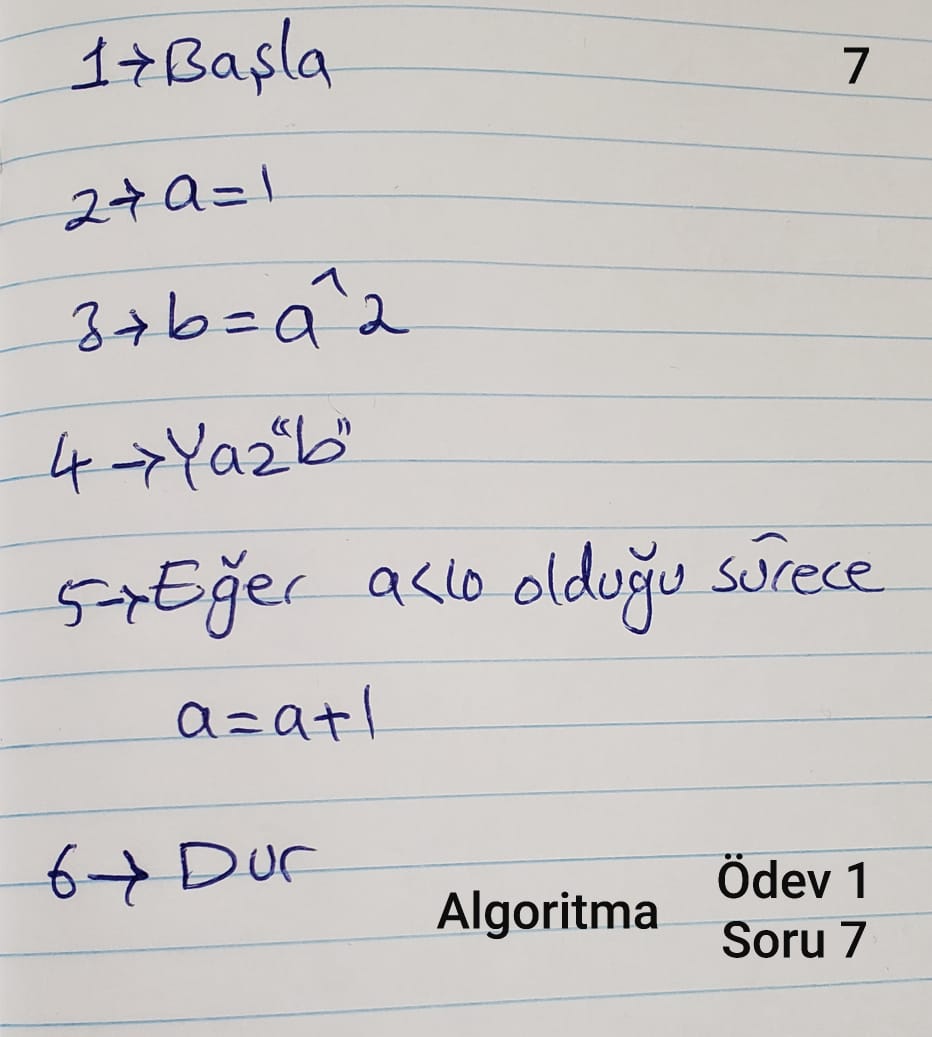 1→Başla
7
2→a=1
3→b=a^2
4→Yaz“b”
5→Eğer a<10 olduğu sûrece
a=a+1
6→Dur
Algoritma
Ödev 1
Soru 7